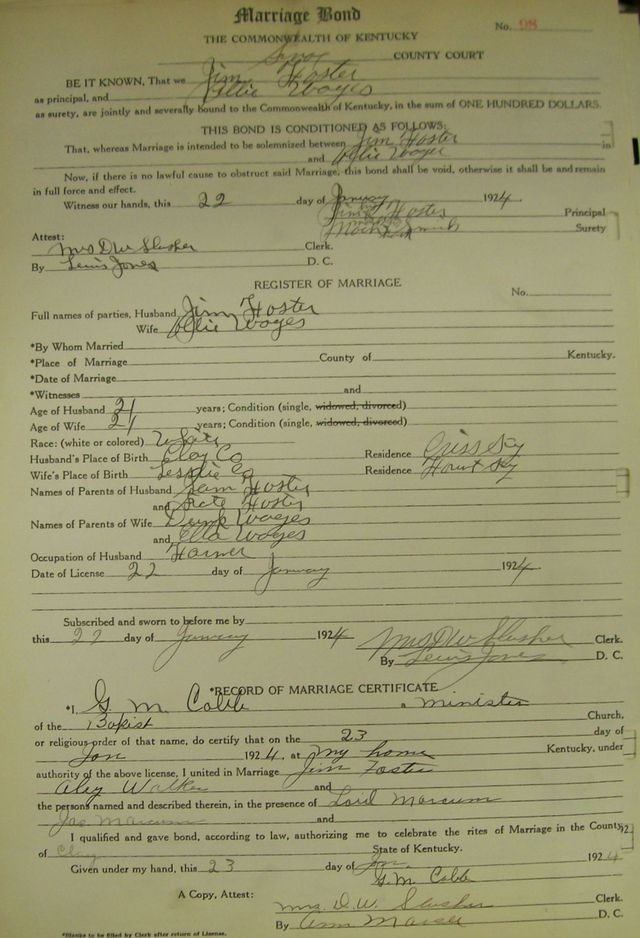 Marriage Bond
No. 98
THE COMMONWEALTH OF KENTUCKY
Knox COUNTY COURT
BE IT KNOWN, That we Jim Hoster
as principal, and Ollie Woges
as surety, are jointly and severally bound to the Commonwealth of Kentucky, in the sum of ONE HUNDRED DOLLARS.
THIS BOND IS CONDITIONED AS FOLLOWS:
That, whereas Marriage is intended to be solemnized between Jim Hoster
and Ollie Woges
Now, if there is no lawful cause to obstruct said Marriage, this bond shall be void, otherwise it shall be and remain
in full force and effect.
Witness our hands, this 22 day of January 1924
Jim Hoster Principal
Surety
Attest:
Mrs D W Slusher Clerk.
By Lewis Jones D. C.
REGISTER OF MARRIAGE
No.
Full names of parties, Husband Jim Hoster
Wife Ollie Woges
*By Whom Married
*Place of Marriage County of Kentucky.
*Date of Marriage
*Witnesses and
Age of Husband 21 years; Condition (single, widowed, divorced)
Age of Wife 21 years; Condition (single, widowed, divorced)
Race: (white or colored) White
Husband's Place of Birth Clay Co Residence Ky
Wife's Place of Birth Leslie Co Residence Ky
Names of Parents of Husband Sam Hoster
and Kate Hoster
Names of Parents of Wife Woges
and Ella Woges
Occupation of Husband Farmer
Date of License 22 day of January 1924.
Subscribed and sworn to before me by
this 22 day of January 1924 Mrs D W Slusher Clerk.
By Lewis Jones D. C.
*RECORD OF MARRIAGE CERTIFICATE
*I, G. M. Cobb a minister
of the Bapist Church,
or religious order of that name, do certify that on the 23 day of
Jan 1924, at my home Kentucky, under
authority of the above license, I united in Marriage Jim Foster
and Walker
the persons named and described therein, in the presence of Marcum
Jas Marcum and
I qualified and gave bond, according to law, authorizing me to celebrate the rites of Marriage in the County
of Clay State of Kentucky.
Given under my hand, this 23 day of Jan 1924
G. M. Cobb
A Copy, Attest: Mrs. D. W. Slusher Clerk.
By Ann D. C.
*Blanks to be filled by Clerk after return of License.